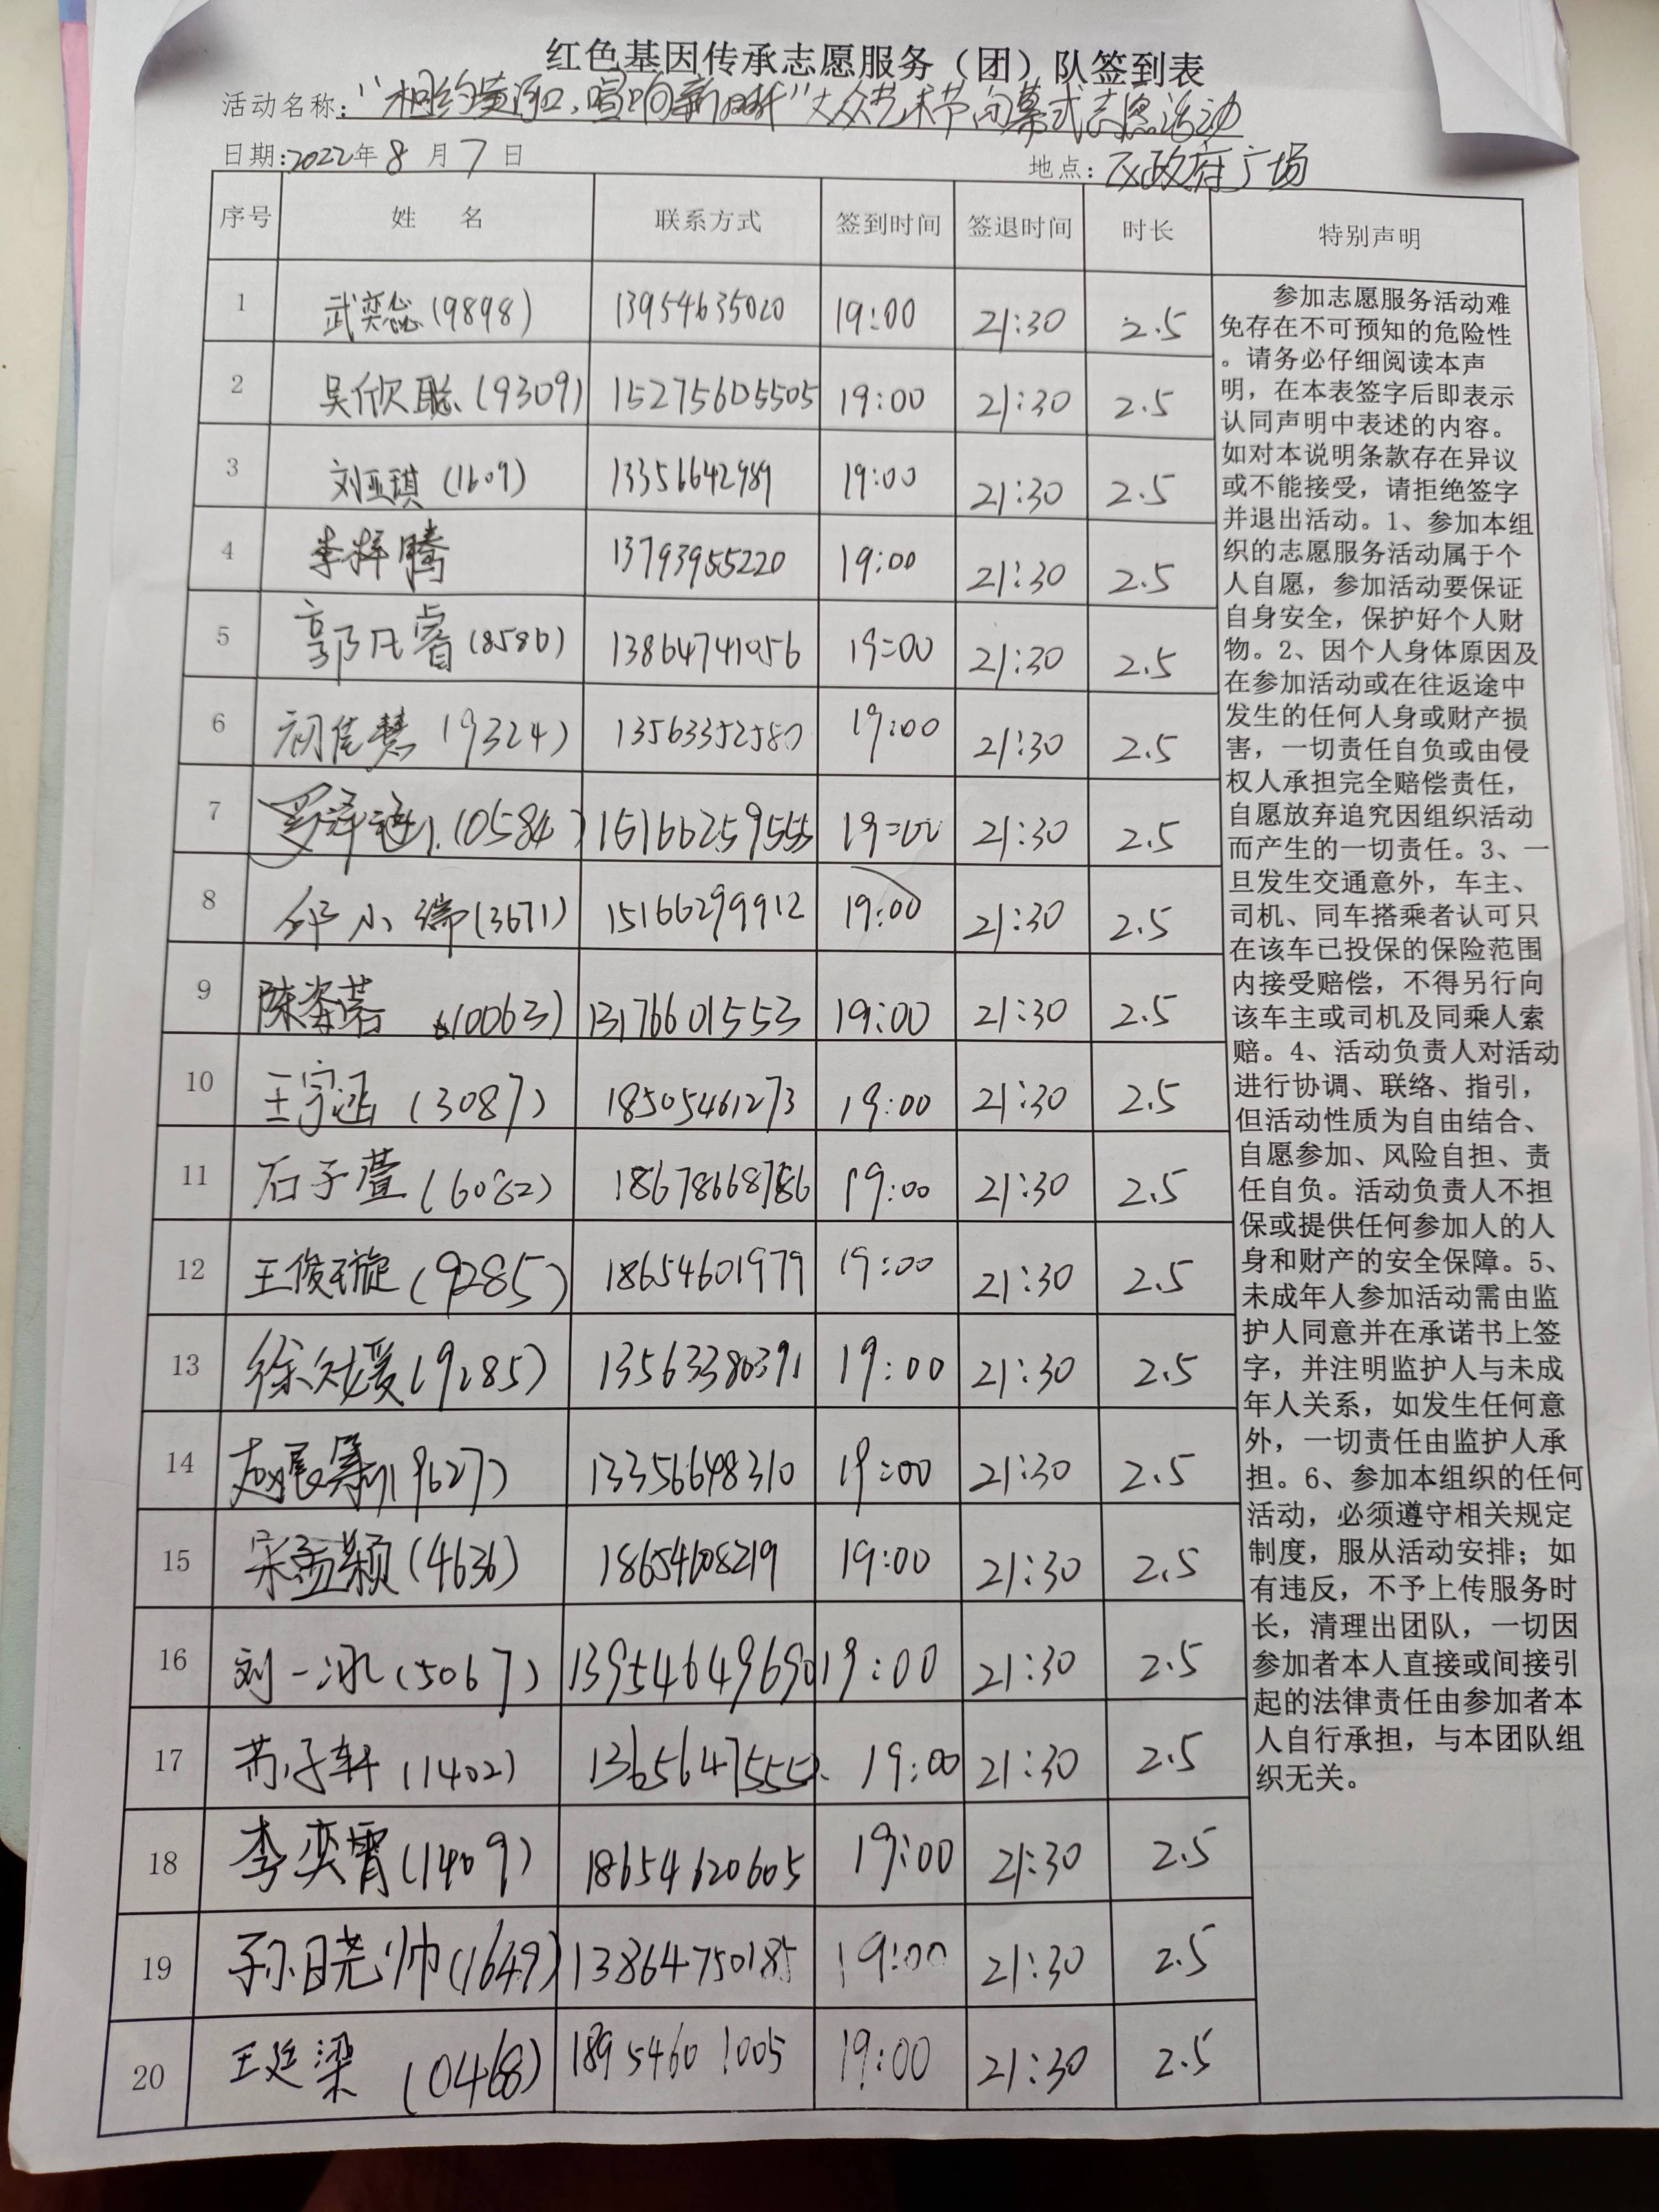 红色基因传承志愿服务（团）队签到表
活动名称：“相约黄河口，唱响新时代”大众艺术节闭幕式志愿活动
日期：2022年8月7日 地点：区政府广场
序号 姓名 联系方式 签到时间 签退时间 时长 特别声明
1 武奕 (9898) 13954635020 19:00 21:30 2.5
2 吴欣聪 (9309) 15275605505 19:00 21:30 2.5
3 刘亚琪 (1609) 13356642989 19:00 21:30 2.5
4 李梓腾 13793955220 19:00 21:30 2.5
5 郭凡睿 (8586) 13864741056 19:00 21:30 2.5
6 初佳慧 (9324) 13563352580 19:00 21:30 2.5
7 (0584) 15166259555 19:00 21:30 2.5
8 邱小瑞 (3671) 15166299912 19:00 21:30 2.5
9 陈姿蓉 (0063) 13176601553 19:00 21:30 2.5
10 王宇涵 (3087) 18505461273 19:00 21:30 2.5
11 石子萱 (6082) 18678668786 19:00 21:30 2.5
12 王俊璇 (9285) 18654601979 19:00 21:30 2.5
13 徐 媛 (9285) 13563380391 19:00 21:30 2.5
14 赵 (9627) 13356648310 19:00 21:30 2.5
15 宋孟颖 (4636) 18654608219 19:00 21:30 2.5
16 刘一冰 (5067) 13954649690 19:00 21:30 2.5
17 子轩 (1402) 13656475552 19:00 21:30 2.5
18 李奕霄 (1409) 18654620605 19:00 21:30 2.5
19 孙晓帅 (1649) 13864750185 19:00 21:30 2.5
20 王廷梁 (0468) 18954601005 19:00 21:30 2.5
参加志愿服务活动难
免存在不可预知的危险性
。请务必仔细阅读本声
明，在本表签字后即表示
认同声明中表述的内容。
如对本说明条款存在异议
或不能接受，请拒绝签字
并退出活动。1、参加本组
织的志愿服务活动属于个
人自愿，参加活动要保证
自身安全，保护好个人财
物。2、因个人身体原因及
在参加活动或在往返途中
发生的任何人身或财产损
害，一切责任自负或由侵
权人承担完全赔偿责任，
自愿放弃追究因组织活动
而产生的一切责任。3、一
旦发生交通意外，车主、
司机、同车搭乘者认可只
在该车已投保的保险范围
内接受赔偿，不得另行向
该车主或司机及同乘人索
赔。4、活动负责人对活动
进行协调、联络、指引，
但活动性质为自由结合、
自愿参加、风险自担、责
任自负。活动负责人不担
保或提供任何参加人的人
身和财产的安全保障。5、
未成年人参加活动需由监
护人同意并在承诺书上签
字，并注明监护人与未成
年人关系，如发生任何意
外，一切责任由监护人承
担。6、参加本组织的任何
活动，必须遵守相关规定
制度，服从活动安排；如
有违反，不予上传服务时
长，清理出团队，一切因
参加者本人直接或间接引
起的法律责任由参加者本
人自行承担，与本团队组
织无关。